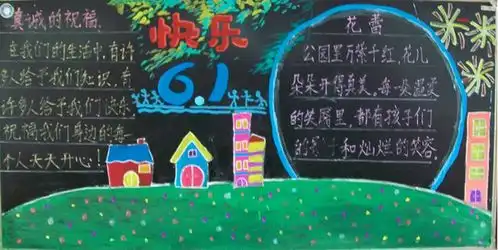 真诚的祝福:
在我们的生活中,有许
多人给予我们知识,有
许多人给予我们快乐
祝福我们身边的每一
个人天天开心!
快乐
6.1
花蕾
公园里万紫千红,花儿
朵朵开得真美。每一朵温柔
的笑厣里,都有孩子们
的 和灿烂的笑容.